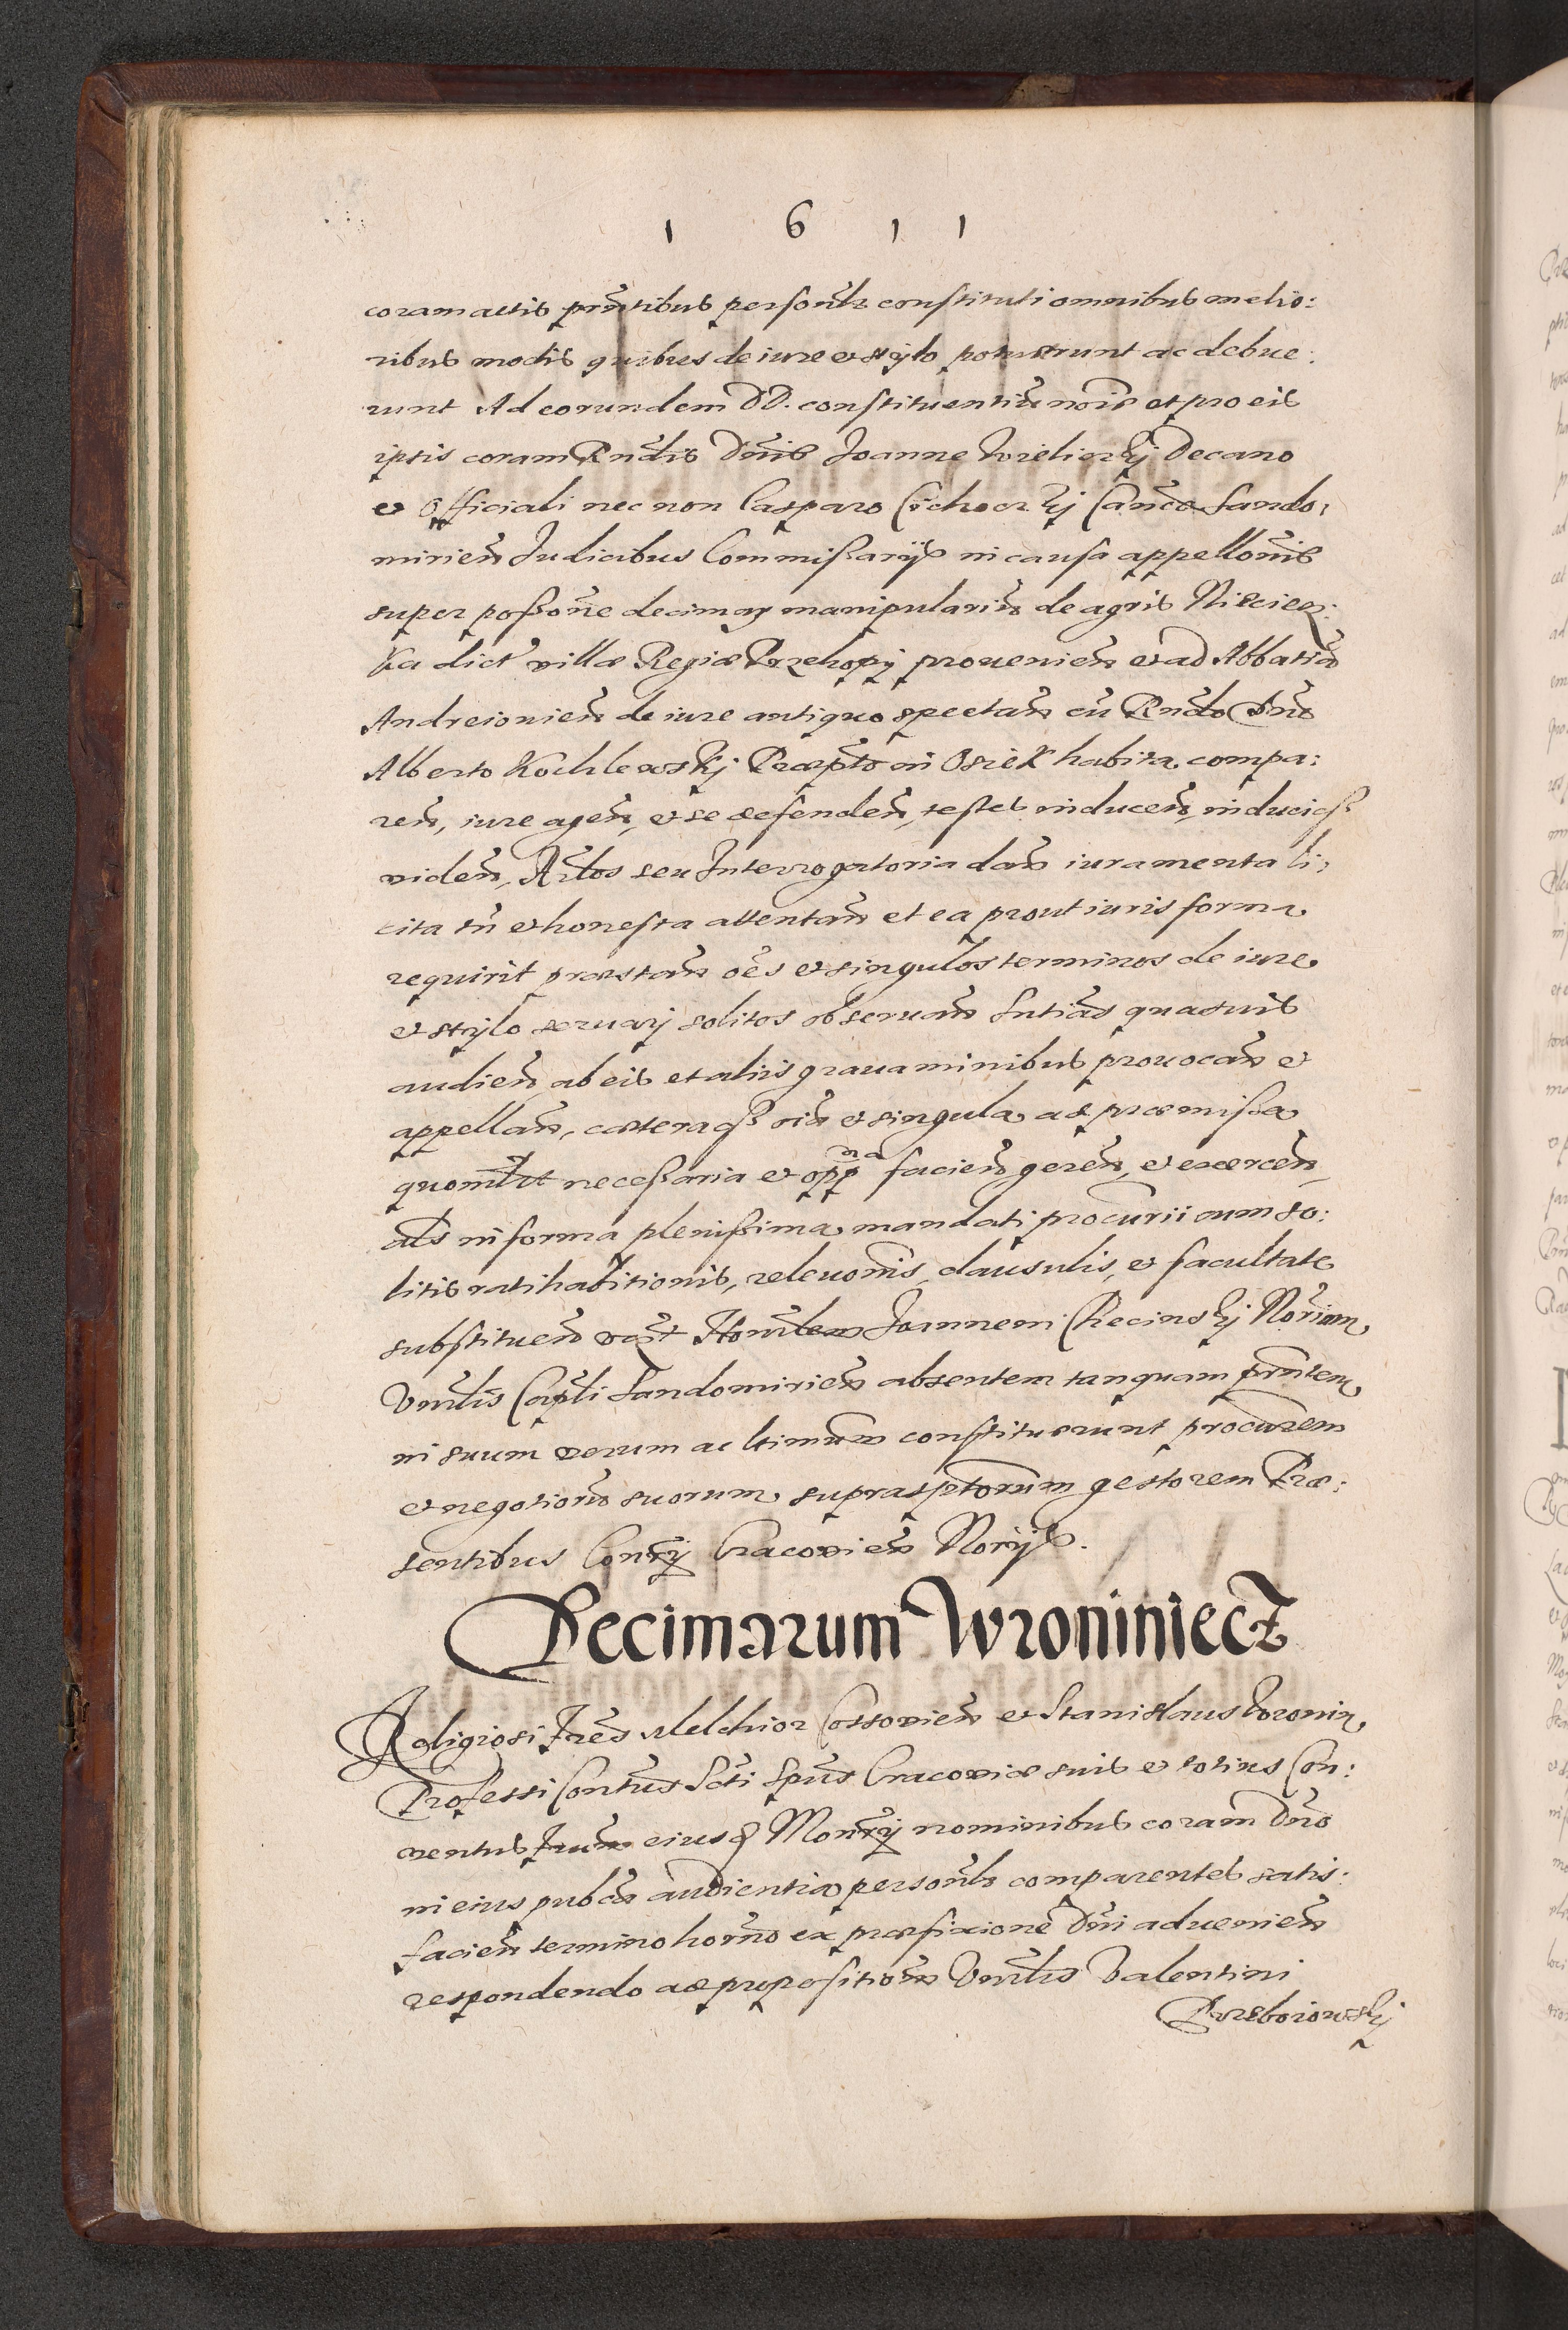 1 6 1 1
coram actis pr̃ntibus personlr̃ constituti omnibus melio:
ribus modis quibus de iure et stylo potuerunt ac debue:
runt Ad eorundem DD. constituentiũ nõie et pro eis
ipsis coram Rñdis Dñis Joanne Wieliczkÿ Decano
et Officiali nec non Casparo Cichoczkÿ Canco Sando:
mirieñ Judicibus Commissarijs in causa appellõnis
super possõne decimarum manipulariũ de agris
dict villæ Regiæ provenieñ et ad Abbatiã
Andreiovieñ de iure antiquo spectañ cũ Rñdo Dño
Alberto Kochlewskÿ Præpto in Osiek habita compa:
reñ, iure ageñ, et se defendeñ, testes induceñ, induciq
videñ, Artlos seu Interrogatoria dañ iuramenta li:
cita tñ et honesta attentañ et ea prout iuris forma
requirit præstañ oẽs et singulos terminos de iure
et stylo servarj solitos observañ Sntiãs quasvis
audieñ, ab eis et aliis gravaminibus provocañ et
appellañ, cæteraq oĩa et singula ad præmissa
quomlt necessaria et opp na facieñ gereñ, et exerceñ
als in forma plenissima mandati procurii cum so:
litis ratihabitionis, relevõnis, clausulis, et facultate
substitueñ Hoñlem Joannem Checinskÿ Norium
Vnlis Capli Sandomirieñ absentem tanquam prñtem
in suum verum ac ltimum constituerunt procurem
et negotiorũ suorum suprasptorum gestorem Præ:
sentibus Cracovieñ Norijs.
Decimarum Wroniniecz
Religiosi Frẽs Melchior Cossovieñ et Stanislaus Woronin
Professi Conṽtus Scti Spũs Cracoviæ suis et totius Con:
ventus Frum eiusd Monrÿ nominibus coram Dño
in eius pubca audientia personlr̃ comparentes satis:
facieñ termino horño ex præfixione Dñi advenieñ
respondendo ad propositionẽ Vnlis Valentini
Przeboiowskÿ